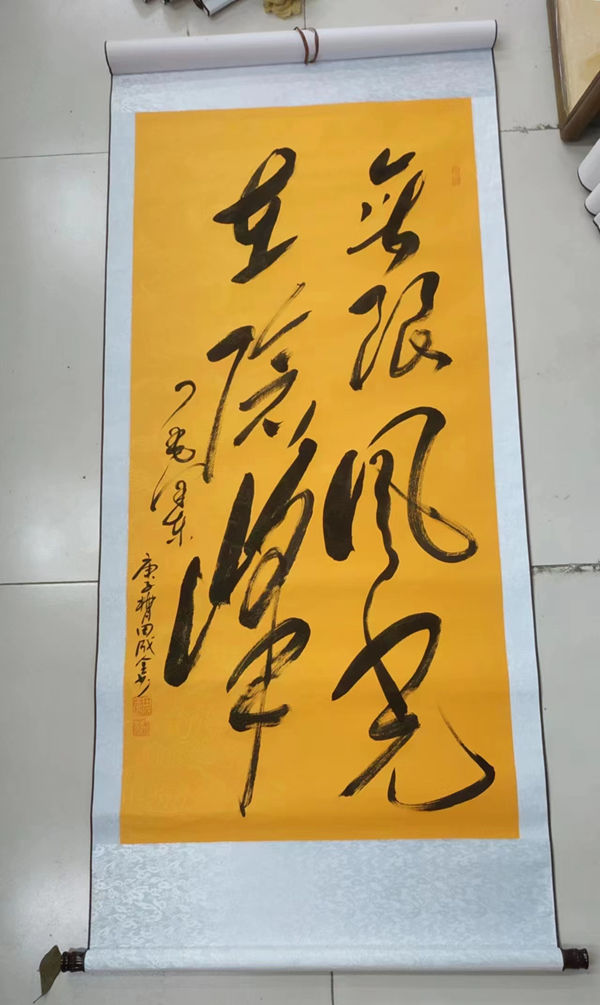 无限风光
在险峰
毛泽东
庚子 田成金书